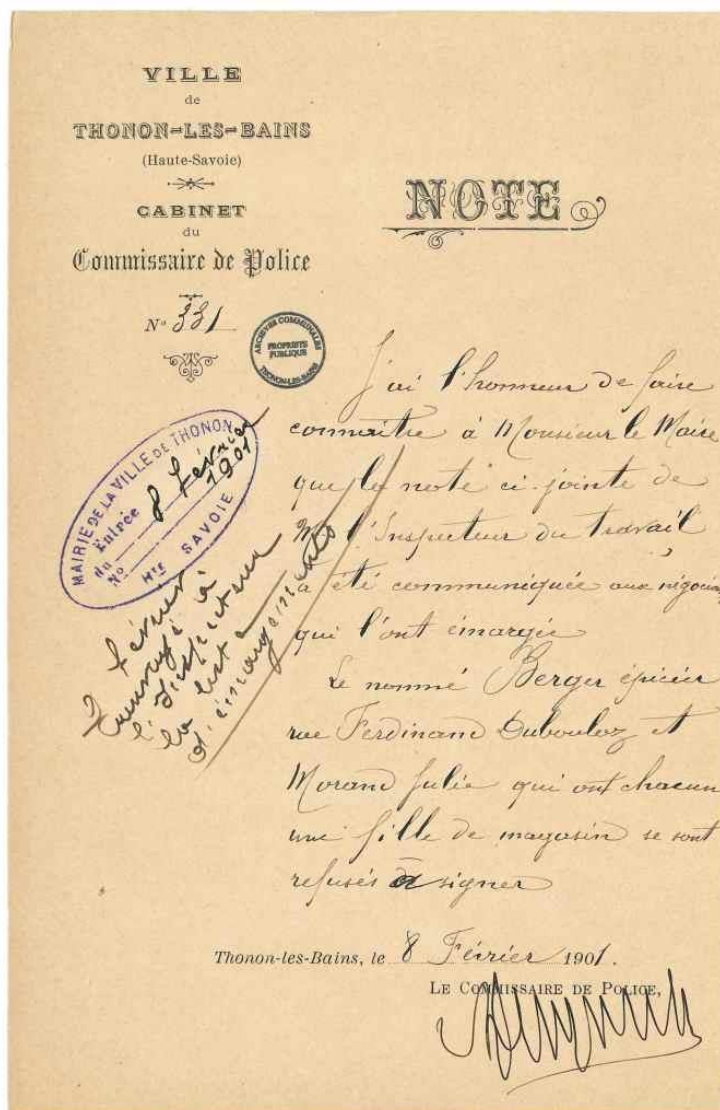 VILLE
de
THONON-LES-BAINS
(Haute-Savoie)
CABINET
du
Commissaire de Police
N° 331
NOTE
ARCHIVES COMMUNALES
PROPRIÉTÉ
PUBLIQUE
THONON-LES-BAINS
MAIRIE DE LA VILLE DE THONON
Entrée
du 8 février
1901
N°
Hte SAVOIE
février
à
l'Inspecteur
la liste
d'émargements
J'ai l'honneur de faire
connaitre à Monsieur le Maire
que la note ci-jointe de
M l'Inspecteur du travail
a été communiquée aux négocian
qui l'ont émargée
Le nommé Berger épicier
rue Ferdinand Dubouloz et
Morand Julie qui ont chacun
une fille de magasin se sont
refusés à signer
Thonon-les-Bains, le 8 Février 1901.
LE COMMISSAIRE DE POLICE,